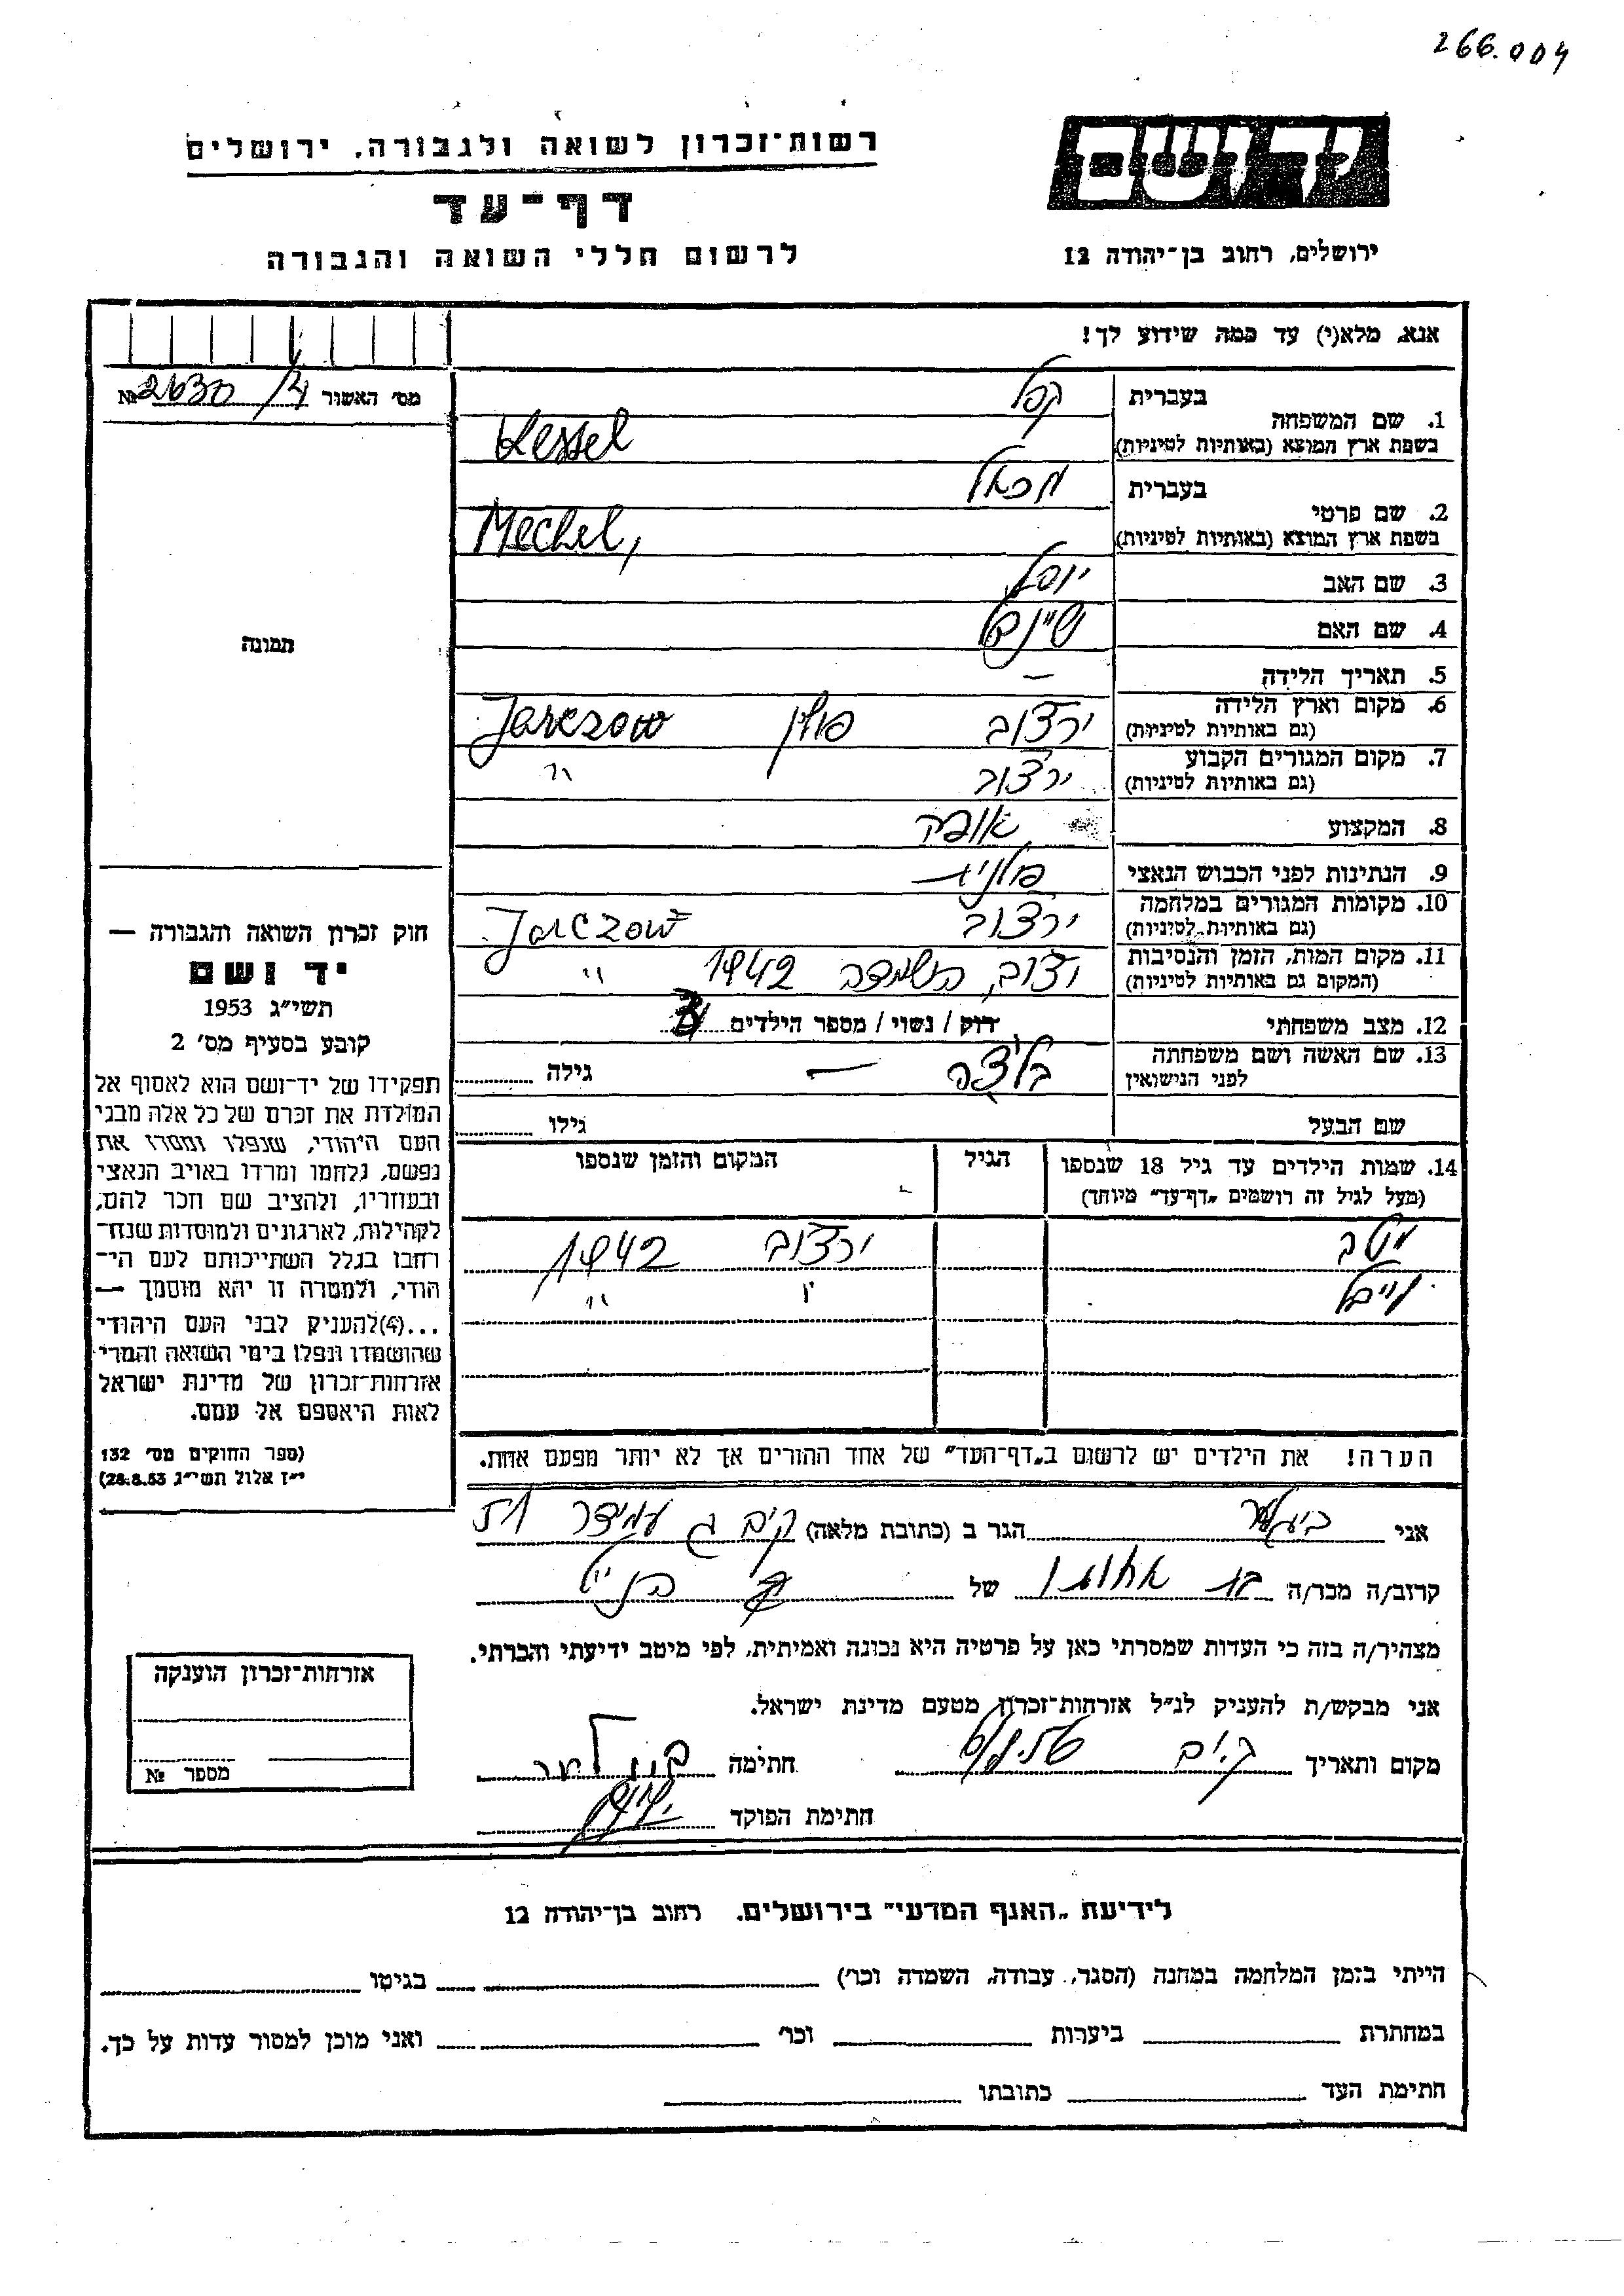 266.004
יד ושם
רשות־זכרון לשואה ולגבורה, ירושלים
דף־עד
לרשום חללי השואה והגבורה
ירושלים, רחוב בן־יהודה 12
אנא, מלא(י) עד כמה שידוע לך!
מס' האשור №
1. שם המשפחה
בעברית קסל
בשפת ארץ המוצא (באותיות לטיניות) Kessel
2. שם פרטי
בעברית מכאל
בשפת ארץ המוצא (באותיות לטיניות) Mechel,
3. שם האב יוסל
4. שם האם
5. תאריך הלידה —
6. מקום וארץ הלידה ירצוב פולין Jarczow
(גם באותיות לטיניות)
7. מקום המגורים הקבוע ירצוב "
(גם באותיות לטיניות)
8. המקצוע אופה
9. הנתינות לפני הכבוש הנאצי פולנית
10. מקומות המגורים במלחמה ירצוב Jarczow
(גם באותיות לטיניות)
11. מקום המות, הזמן והנסיבות השמדה 1942 "
(המקום גם באותיות לטיניות)
12. מצב משפחתי רווק / נשוי / מספר הילדים
13. שם האשה ושם משפחתה — גילה
לפני הנישואין
שם הבעל גילו
14. שמות הילדים עד גיל 18 שנספו הגיל המקום והזמן שנספו
(מעל לגיל זה רושמים „דף־עד" מיוחד)
ירצוב 1942
" "
הערה! את הילדים יש לרשום ב„דף־העד" של אחד ההורים אך לא יותר מפעם אחת.
תמונה
חוק זכרון השואה והגבורה —
יד ושם
תשי"ג 1953
קובע בסעיף מס' 2
תפקידו של יד־ושם הוא לאסוף אל
המולדת את זכרם של כל אלה מבני
העם היהודי, שנפלו ומסרו את
נפשם, נלחמו ומרדו באויב הנאצי
ובעוזריו, ולהציב שם וזכר להם,
לקהילות, לארגונים ולמוסדות שנח־
רחבו בגלל השתייכותם לעם הי־
הודי, ולמטרה זו יהא מוסמך —
...(4)להעניק לבני העם היהודי
שהושמדו ונפלו בימי השואה והמרי
אזרחות־זכרון של מדינת ישראל
לאות היאספם אל עמם.
(ספר החוקים מס' 132
י"ז אלול תשי"ג 28.8.53)
אני הגר ב (כתובת מלאה) עמידר
קרוב/ה מכר/ה של
מצהיר/ה בזה כי העדות שמסרתי כאן על פרטיה היא נכונה ואמיתית, לפי מיטב ידיעתי והכרתי.
אני מבקש/ת להעניק לנ"ל אזרחות־זכרון מטעם מדינת ישראל.
מקום ותאריך חתימה
חתימת הפוקד
אזרחות־זכרון הוענקה
מספר №
לידיעת „האגף המדעי" בירושלים. רחוב בן־יהודה 12
הייתי בזמן המלחמה במחנה (הסגר, עבודה, השמדה וכו') בגיטו
במחתרת ביערות וכו' ואני מוכן למסור עדות על כך.
חתימת העד כתובתו